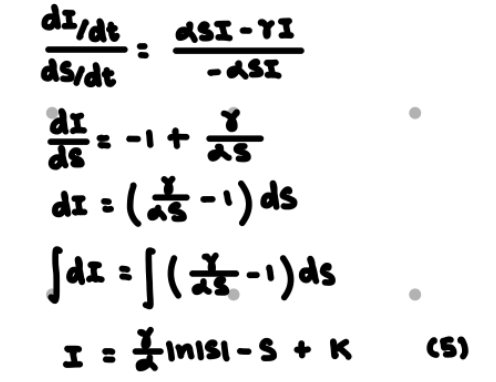 dI/dt / dS/dt = αSI - γI / -αSI
dI/dS = -1 + γ/αS
dI = (γ/αS - 1) dS
∫dI = ∫(γ/αS - 1) dS
I = γ/α ln|S| - S + K (5)